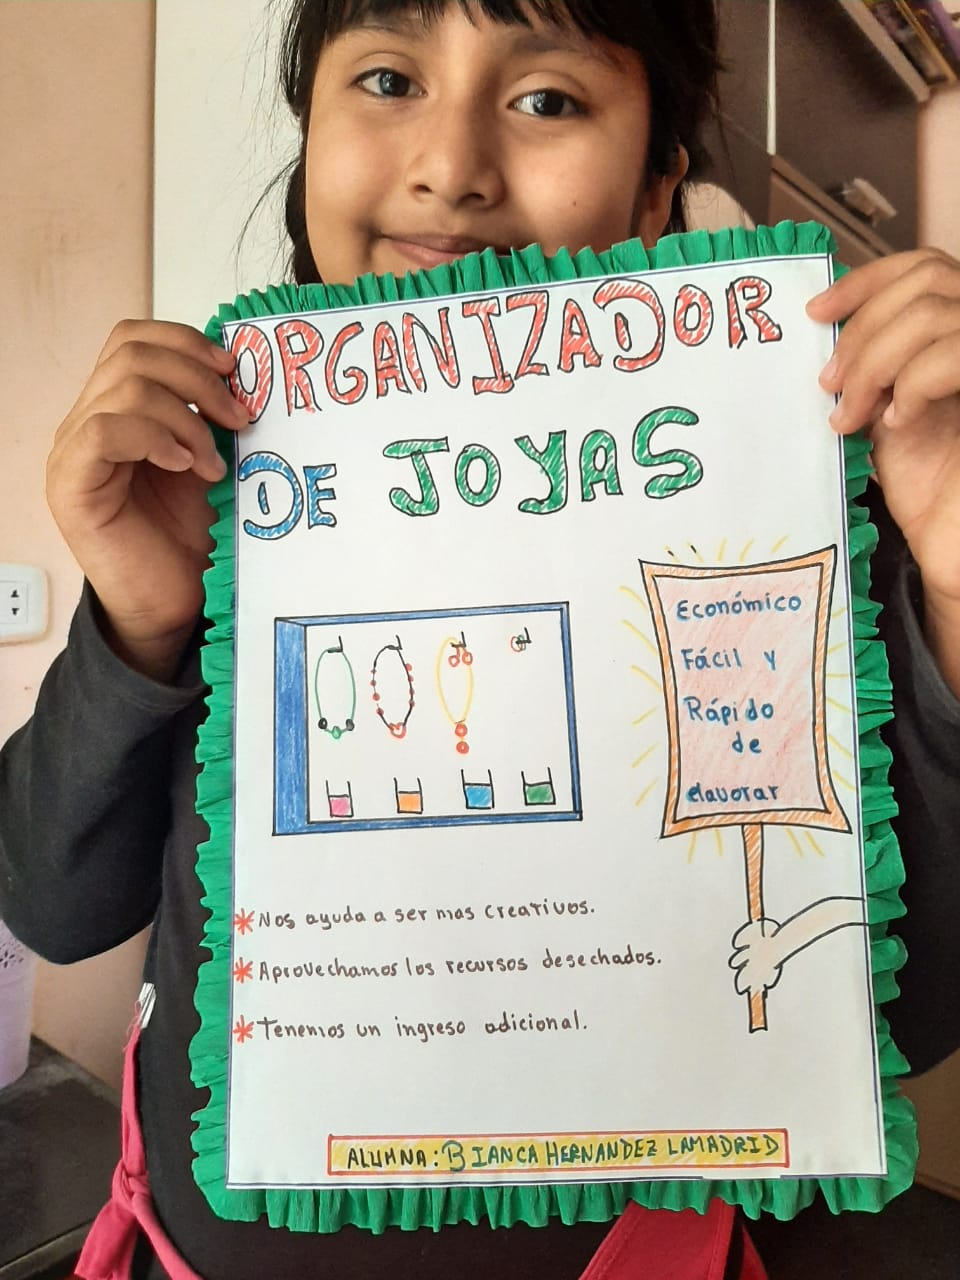 ORGANIZADOR
DE JOYAS
Económico
Fácil y
Rápido
de
elavorar
* Nos ayuda a ser mas creativos.
* Aprovechamos los recursos desechados.
* Tenemos un ingreso adicional.
ALUMNA: BIANCA HERNANDEZ LAMADRID